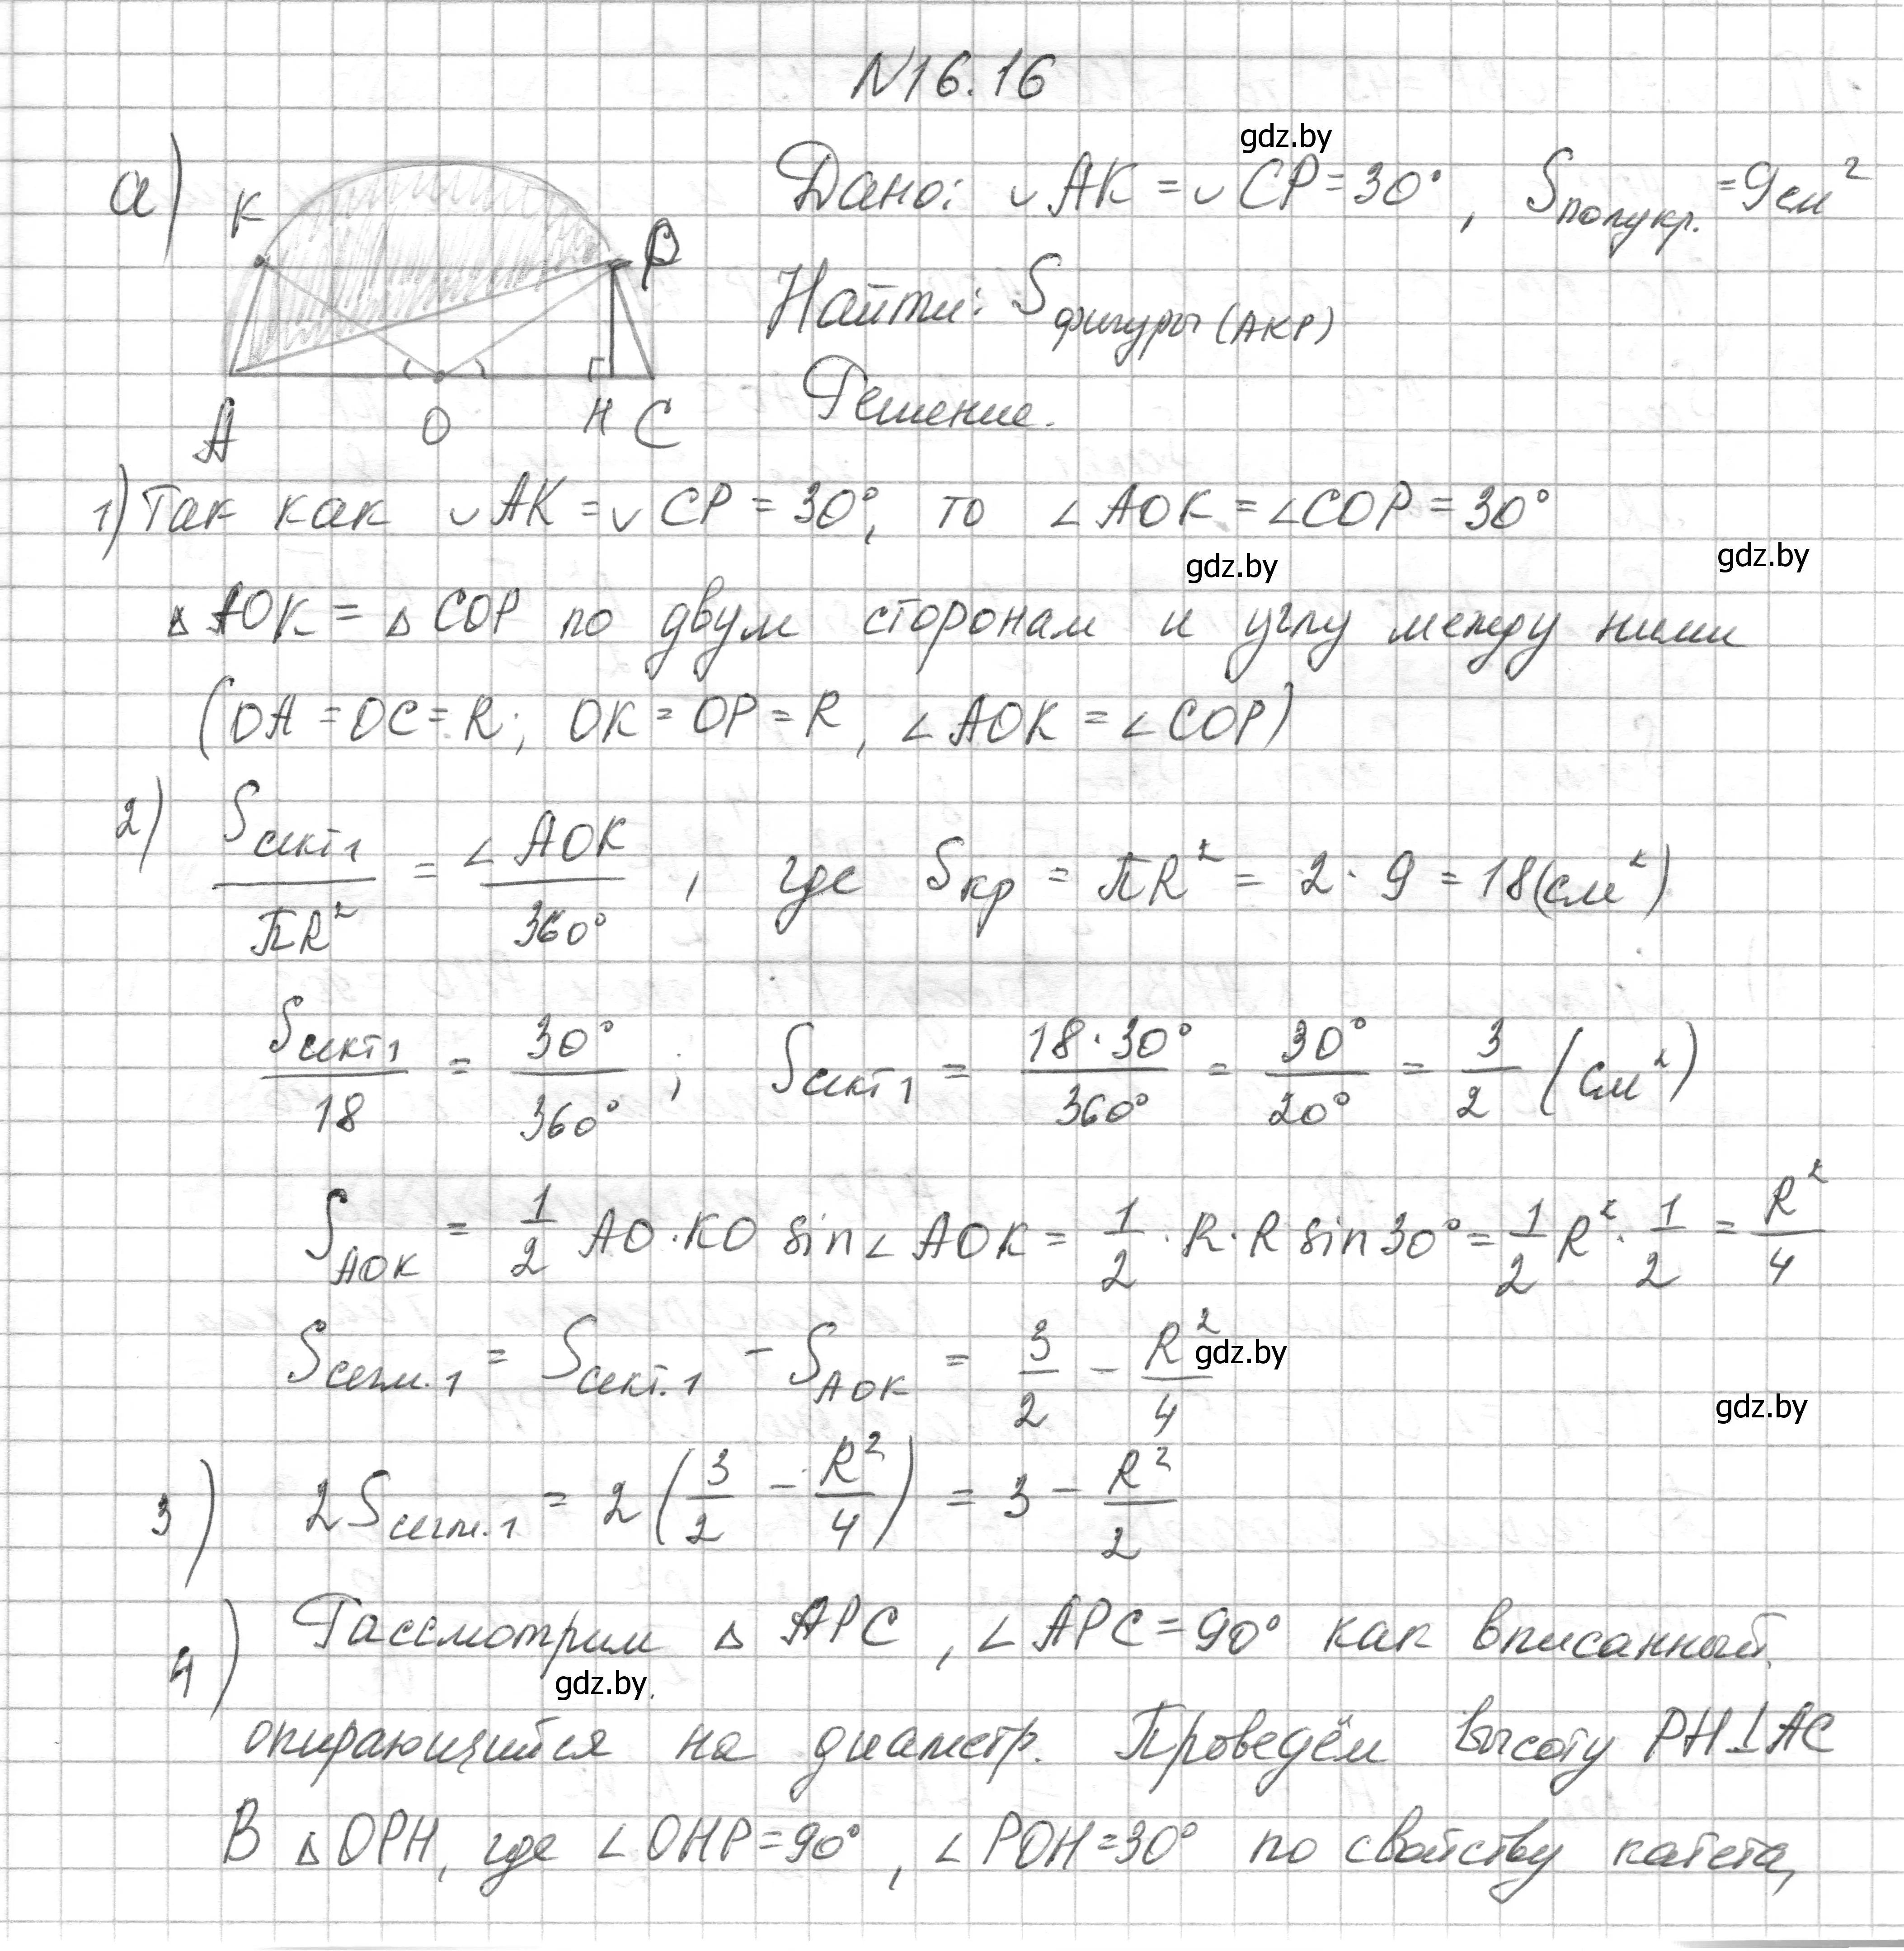 N16.16
gdz.by
а) Дано: ◡AK = ◡CP = 30°, Sполукр. = 9см²
K P
Найти: Sфигуры (AKP)
Решение.
A O H C
1) Так как ◡AK = ◡CP = 30°, то ∠AOK = ∠COP = 30°
gdz.by gdz.by
△AOK = △COP по двум сторонам и углу между ними
(OA = OC = R; OK = OP = R, ∠AOK = ∠COP)
2) Sсект1/πR² = ∠AOK/360°, где Sкр = πR² = 2·9 = 18(см²)
Sсект1/18 = 30°/360°; Sсект1 = 18·30°/360° = 30°/20° = 3/2 (см²)
SAOK = 1/2 AO·KO sin∠AOK = 1/2·R·R sin30° = 1/2 R²·1/2 = R²/4
Sсегм.1 = Sсект.1 − SAOK = 3/2 − R²/4
gdz.by
gdz.by
3) 2Sсегм.1 = 2(3/2 − R²/4) = 3 − R²/2
4) Рассмотрим △APC, ∠APC = 90° как вписанный,
gdz.by
опирающийся на диаметр. Проведём высоту PH⊥AC
В △OPH, где ∠OHP = 90°, ∠POH = 30° по свойству катета,